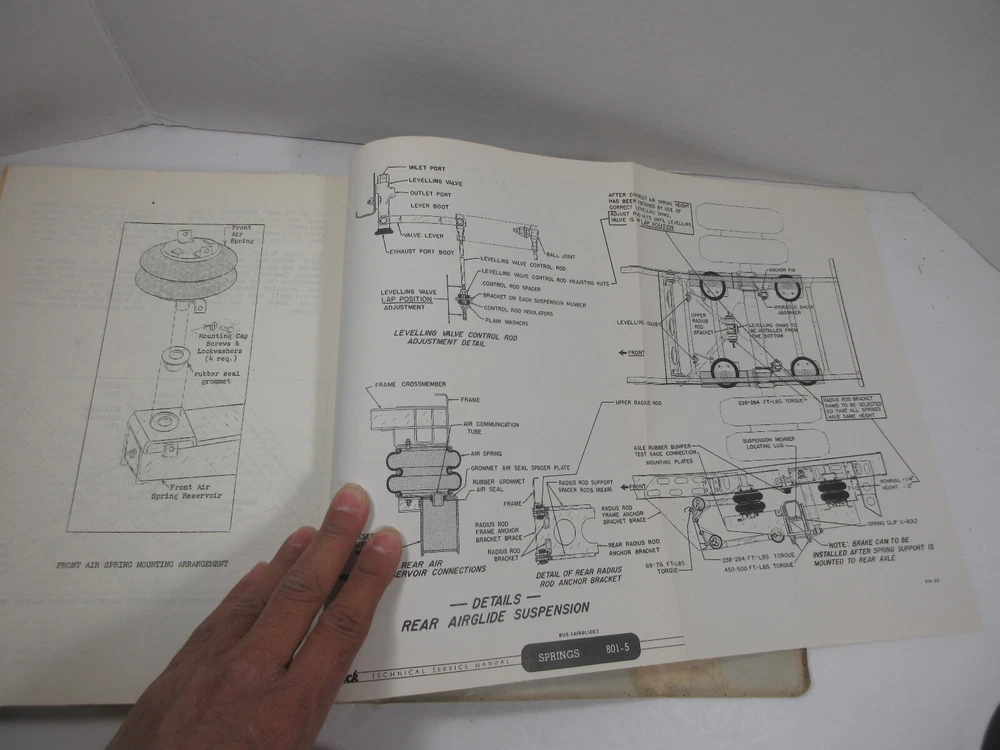 Front
Air
Spring
Mounting Cap
Screws &
Lockwashers
(4 req.)
rubber seal
grommet
Front Air
Spring Reservoir
FRONT AIR SPRING MOUNTING ARRANGEMENT
INLET PORT
LEVELLING VALVE
OUTLET PORT
LEVER BOOT
VALVE LEVER
EXHAUST PORT BOOT
BALL JOINT
LEVELLING VALVE CONTROL ROD
LEVELLING VALVE CONTROL ROD ADJUSTING NUTS
CONTROL ROD SPACER
BRACKET ON EACH SUSPENSION MEMBER
CONTROL ROD INSULATORS
PLAIN WASHERS
LEVELLING VALVE
LAP POSITION
ADJUSTMENT
LEVELLING VALVE CONTROL ROD
ADJUSTMENT DETAIL
AFTER CORRECT AIR SPRING HEIGHT
HAS BEEN OBTAINED BY USE OF
CORRECT LEVELLING SHIMS,
ADJUST ROD NUTS UNTIL LEVELLING
VALVE IS IN LAP POSITION
ANCHOR PIN
HYDRAULIC SHOCK
ABSORBER
UPPER
RADIUS
ROD
BRACKET
LEVELLING VALVE
LEVELLING SHIMS TO
BE INSTALLED FROM
THE BOTTOM
FRONT
238-264 FT-LBS TORQUE
RADIUS ROD BRACKET
SHIMS TO BE SELECTED
SO THAT ALL SPRINGS
HAVE SAME HEIGHT
FRAME CROSSMEMBER
FRAME
AIR COMMUNICATION
TUBE
AIR SPRING
GROMMET AIR SEAL SPACER PLATE
RUBBER GROMMET
AIR SEAL
REAR AIR
RVOIR CONNECTIONS
UPPER RADIUS ROD
FRAME
RADIUS ROD SUPPORT
SPACER RODS (REAR)
RADIUS ROD
FRAME ANCHOR
BRACKET BRACE
RADIUS ROD
BRACKET
REAR RADIUS ROD
ANCHOR BRACKET
DETAIL OF REAR RADIUS
ROD ANCHOR BRACKET
SUSPENSION MEMBER
LOCATING LUG
AXLE RUBBER BUMPER
TEST GAGE CONNECTION
MOUNTING PLATES
FRONT
RADIUS ROD
FRAME ANCHOR
BRACKET BRACE
NOMINAL
HEIGHT
SPRING CLIP U-BOLT
69-76 FT-LBS
TORQUE
238-264 FT-LBS TORQUE
450-500 FT-LBS TORQUE
NOTE: BRAKE CAM TO BE
INSTALLED AFTER SPRING SUPPORT IS
MOUNTED TO REAR AXLE
— DETAILS —
REAR AIRGLIDE SUSPENSION
BUS (AIRGLIDE)
ck TECHNICAL SERVICE MANUAL
SPRINGS 801-5